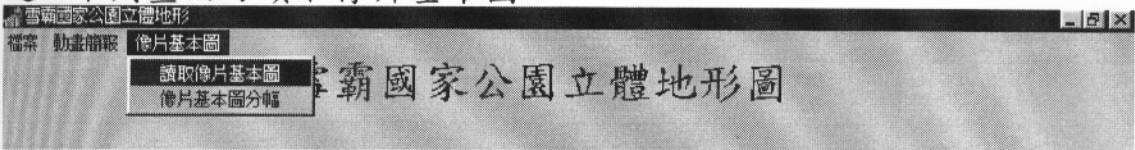 雪霸國家公園立體地形
檔案 動畫簡報 像片基本圖
讀取像片基本圖
像片基本圖分幅
霸國家公園立體地形圖